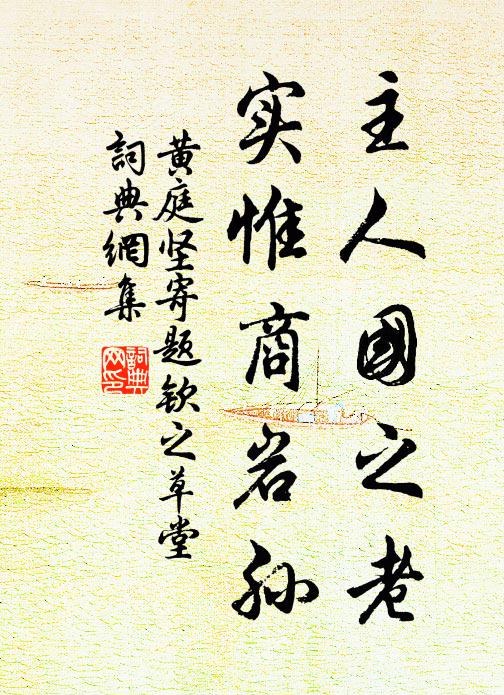 主人國之老
实惟商岩孙
黄庭坚寄题钦之草堂
詞典網集
詞典
网印